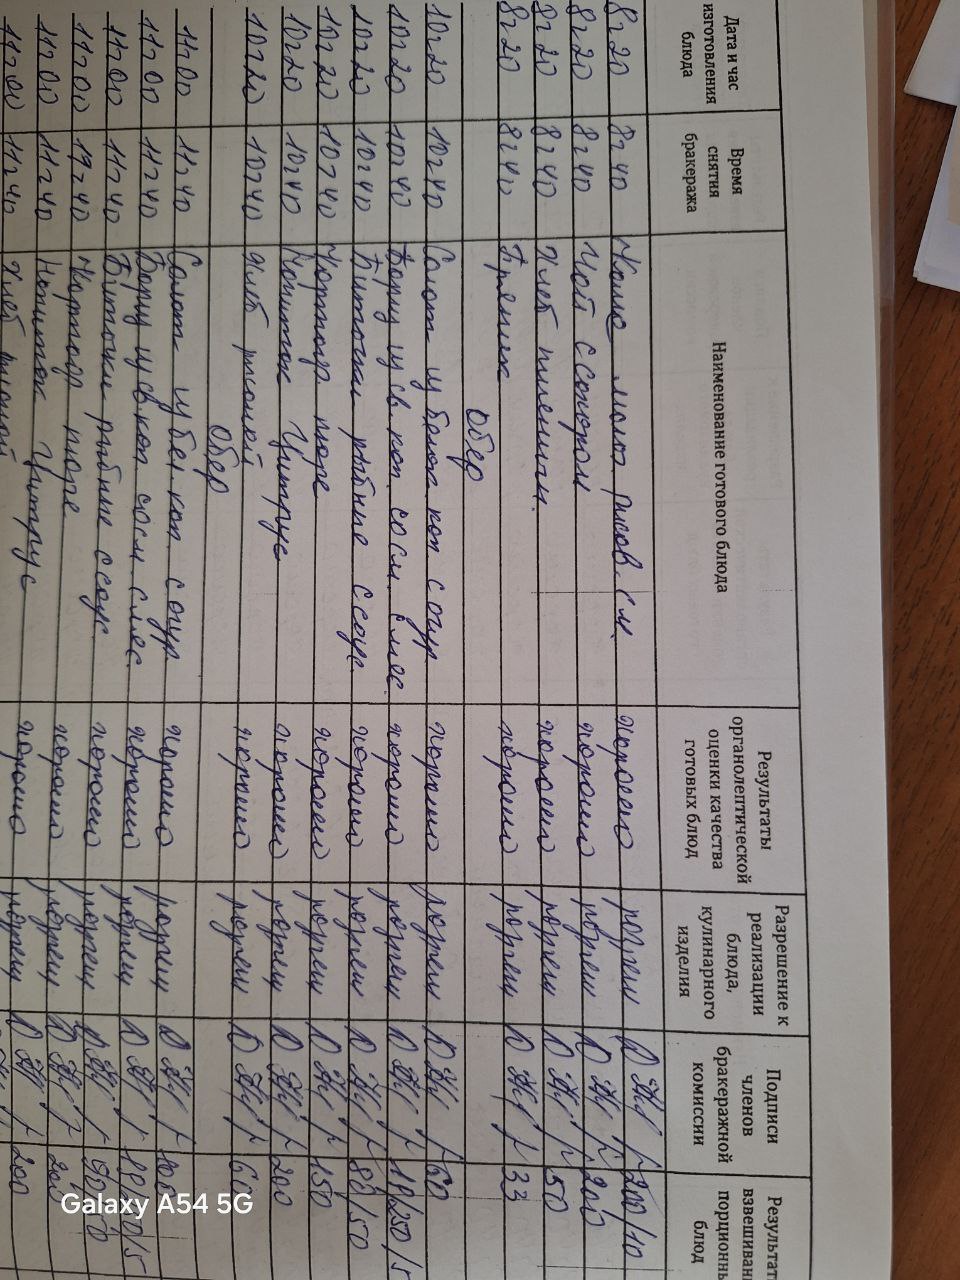 Дата и час изготовления блюда
Время снятия бракеража
Наименование готового блюда
Результаты органолептической оценки качества готовых блюд
Разрешение к реализации блюда, кулинарного изделия
Подписи членов бракеражной комиссии
Результат взвешиван порционн блюд
8ч20 8ч40 молоч рисов. см хорошо разреш 200/10
8ч20 8ч40 Чай с сахаром хорошо разреш 200
8ч20 8ч40 Хлеб пшенич. хорошо разреш 50
8ч20 8ч40 Пряник хорошо разреш 33
Обед
10ч20 10ч40 Салат из белок. кап с огур хорошо разреш 60
10ч20 10ч40 Борщ из св кап. со см. с мяс. хорошо разреш 10/250/5
10ч20 10ч40 Биточки рыбные с соус. хорошо разреш 80/50
10ч20 10ч40 Картофр пюре хорошо разреш 150
10ч20 10ч40 Напиток Цитрус хорошо разреш 200
10ч20 10ч40 Хлеб ржаной хорошо разреш 60
Обед
11ч00 11ч40 Салат из бел. кап. с огур хорошо разреш 100
11ч00 11ч40 Борщ из св кап со см с мяс хорошо разреш
11ч00 11ч40 Биточки рыбные с соус. хорошо разреш 90/50
11ч00 11ч40 Картофр пюре хорошо разреш 200
11ч00 11ч40 Напиток Цитрус хорошо разреш 200
11ч00 11ч40 Хлеб ржаной хорошо разреш
Galaxy A54 5G